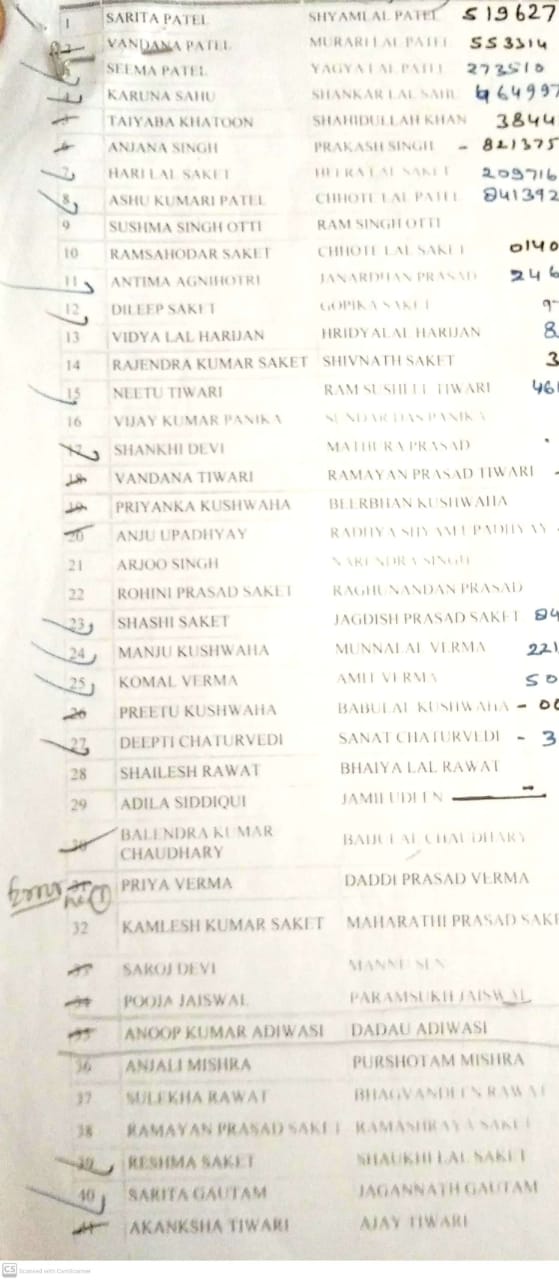 1 SARITA PATEL SHYAMLAL PATEL 519627
VANDANA PATEL MURARI LAL PATEL 553314
SEEMA PATEL YAGYA LAL PATEL 273510
KARUNA SAHU SHANKAR LAL SAHU 64997
TAIYABA KHATOON SHAHIDULLAH KHAN 3844
ANJANA SINGH PRAKASH SINGH - 821375
HARI LAL SAKET HEERA LAL SAKET 209716
8 ASHU KUMARI PATEL CHHOTE LAL PATEL 841392
9 SUSHMA SINGH OTTI RAM SINGH OTTI
10 RAMSAHODAR SAKET CHHOTE LAL SAKET 0140
11 ANTIMA AGNIHOTRI JANARDHAN PRASAD 246
12 DILEEP SAKET GOPIKA SAKET 9-
13 VIDYA LAL HARIJAN HRIDYALAL HARIJAN 8
14 RAJENDRA KUMAR SAKET SHIVNATH SAKET 3
15 NEETU TIWARI RAM SUSHEEL TIWARI 461
16 VIJAY KUMAR PANIKA SUNDAR DAS PANIKA
17 SHANKHI DEVI MATHURA PRASAD
18 VANDANA TIWARI RAMAYAN PRASAD TIWARI
19 PRIYANKA KUSHWAHA BEERBHAN KUSHWAHA
20 ANJU UPADHYAY RADHYA SHYAM UPADHYAY
21 ARJOO SINGH NARENDRA SINGH
22 ROHINI PRASAD SAKET RAGHUNANDAN PRASAD
23 SHASHI SAKET JAGDISH PRASAD SAKET 84
24 MANJU KUSHWAHA MUNNALAL VERMA 221
25 KOMAL VERMA AMIT VERMA 50
26 PREETU KUSHWAHA BABULAL KUSHWAHA - 00
27 DEEPTI CHATURVEDI SANAT CHATURVEDI - 3
28 SHAILESH RAWAT BHAIYA LAL RAWAT
29 ADILA SIDDIQUI JAMILUDEEN
30 BALENDRA KUMAR CHAUDHARY BABULAL CHAUDHARY
31 PRIYA VERMA DADDI PRASAD VERMA
32 KAMLESH KUMAR SAKET MAHARATHI PRASAD SAKE
33 SAROJ DEVI MANNU SEN
34 POOJA JAISWAL PARAMSUKH JAISWAL
35 ANOOP KUMAR ADIWASI DADAU ADIWASI
36 ANJALI MISHRA PURSHOTAM MISHRA
37 SULEKHA RAWAT BHAGVANDEEN RAWAT
38 RAMAYAN PRASAD SAKET RAMASHRAYA SAKET
39 RESHMA SAKET SHAUKHI LAL SAKET
40 SARITA GAUTAM JAGANNATH GAUTAM
41 AKANKSHA TIWARI AJAY TIWARI
CS Scanned with CamScanner